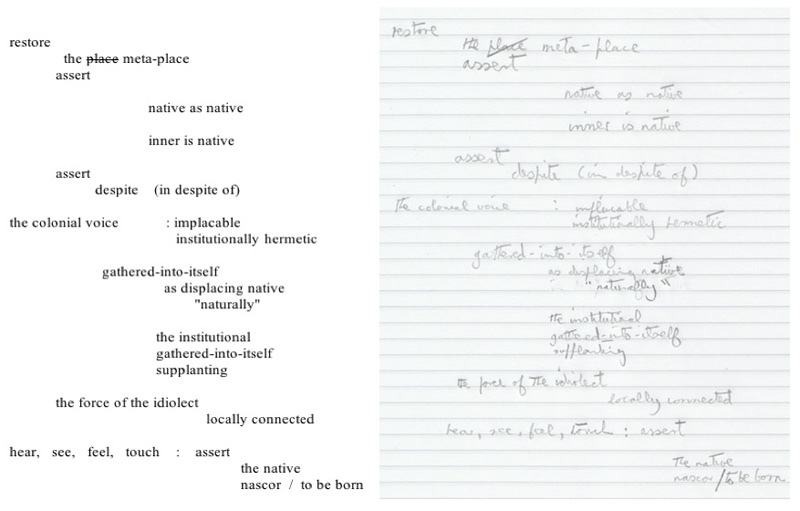 restore
the place meta-place
assert
native as native
inner is native
assert
despite (in despite of)
the colonial voice : implacable
institutionally hermetic
gathered-into-itself
as displacing native
"naturally"
the institutional
gathered-into-itself
supplanting
the force of the idiolect
locally connected
hear, see, feel, touch : assert
the native
nascor / to be born
restore
the place meta-place
assert
native as native
inner is native
assert
despite (in despite of)
the colonial voice : implacable
institutionally hermetic
gathered-into-itself
as displacing native
"naturally"
the institutional
gathered-into-itself
supplanting
the force of the idiolect
locally connected
hear, see, feel, touch : assert
the native
nascor / to be born